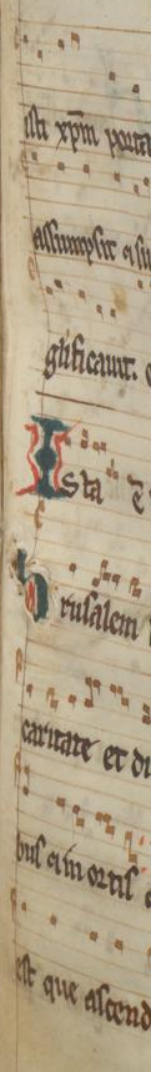 isti xpm porta
assumpsit a su
glificauit.
Ista ē
rusalem
caritate et di
bus a in ortis
est que ascend